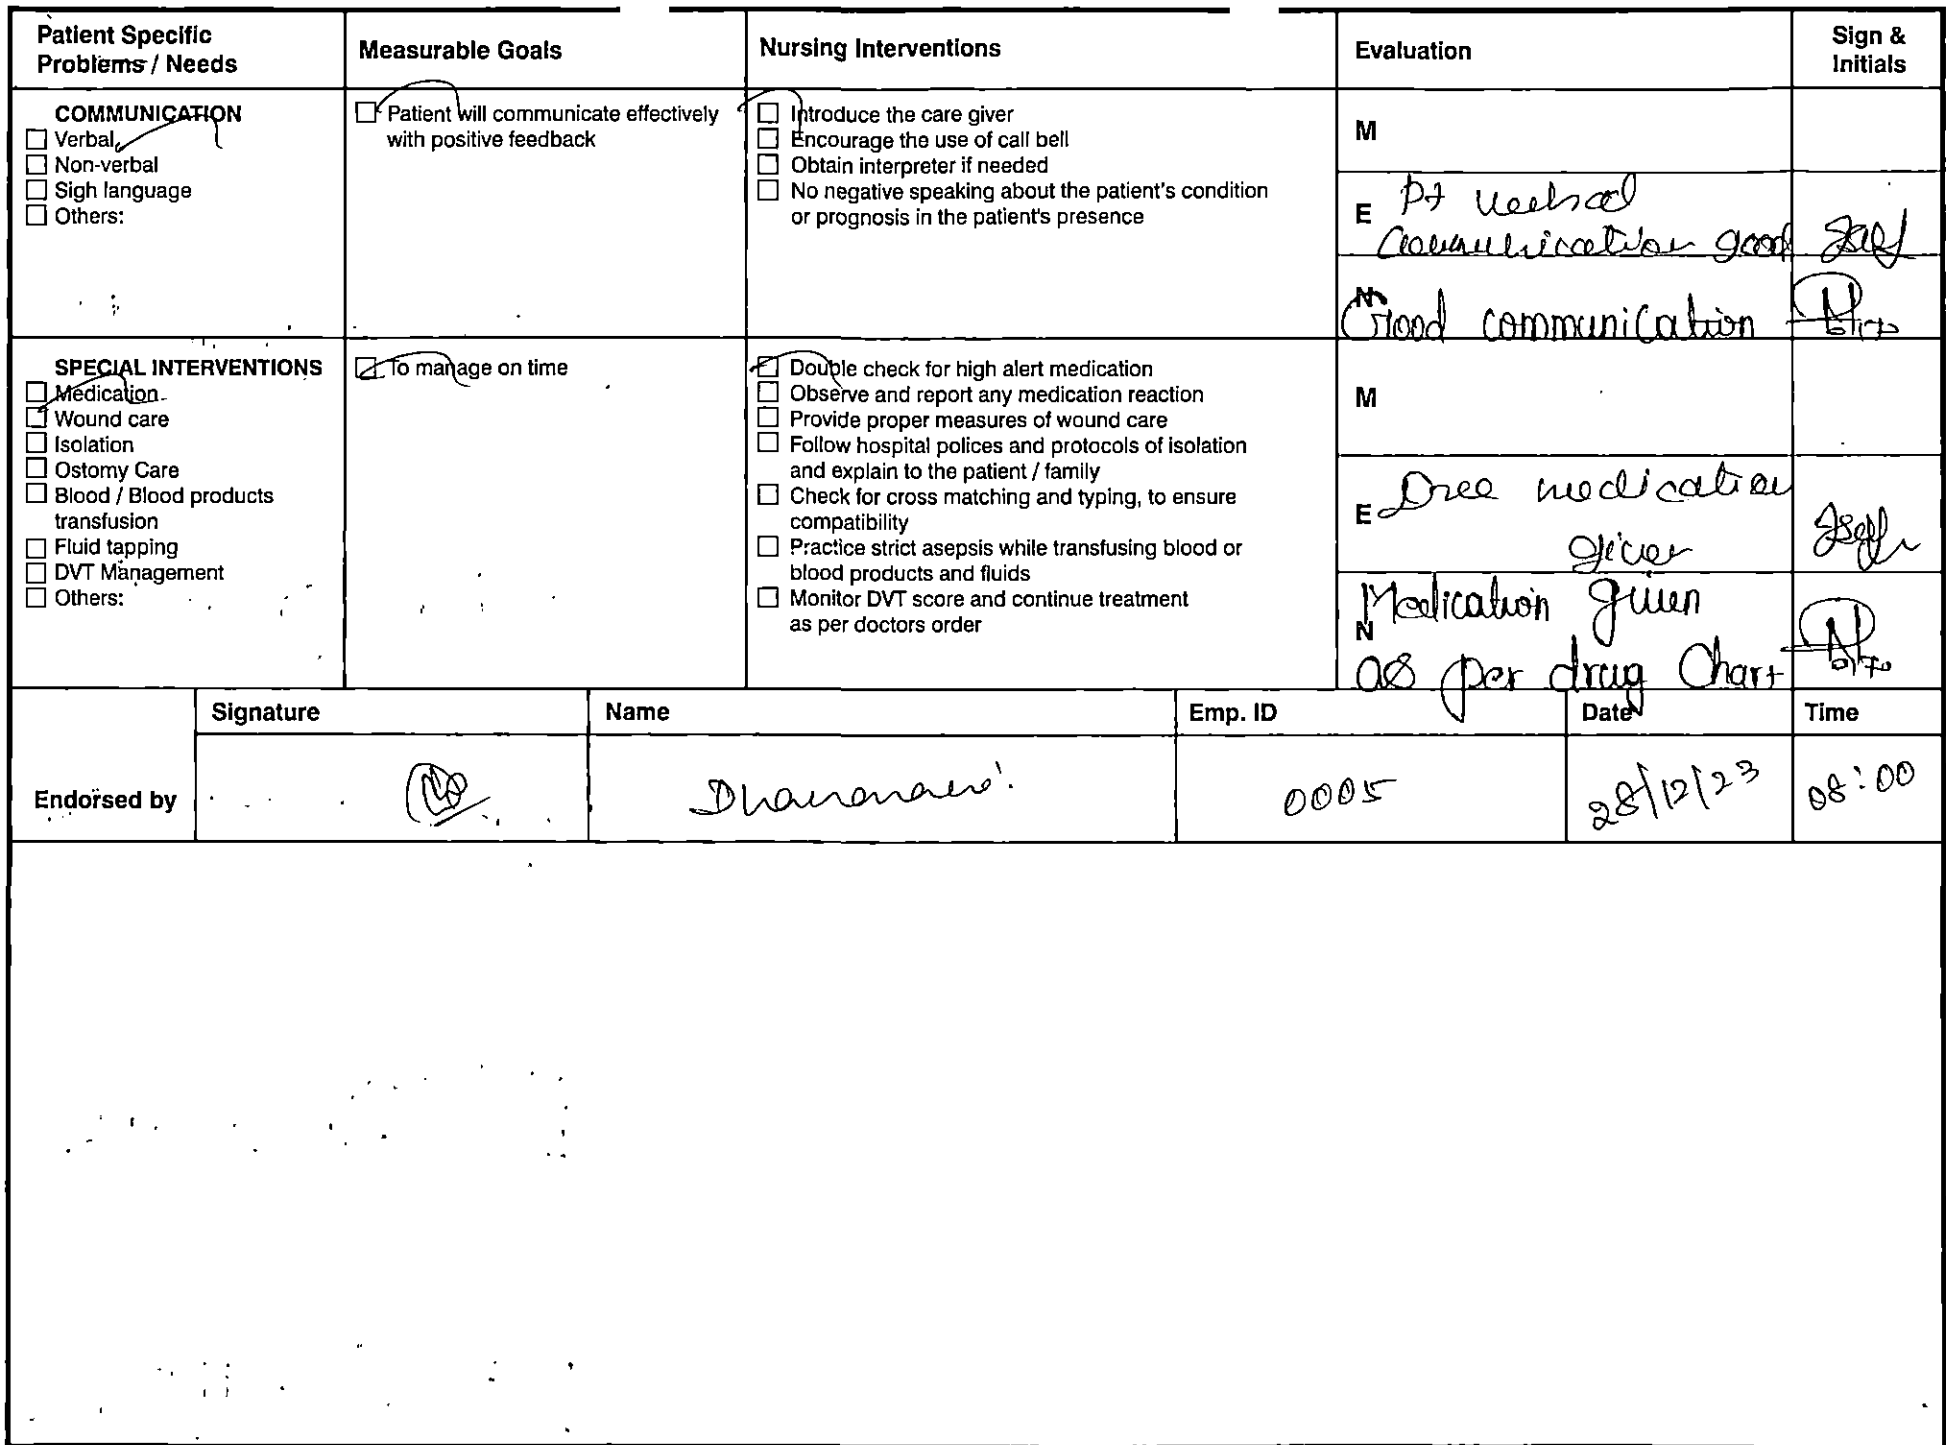 Patient Specific Problems / Needs
Measurable Goals
Nursing Interventions
Evaluation
Sign & Initials
COMMUNICATION
☐ Verbal
☐ Non-verbal
☐ Sigh language
☐ Others:
☐ Patient will communicate effectively
with positive feedback
☐ Introduce the care giver
☐ Encourage the use of call bell
☐ Obtain interpreter if needed
☐ No negative speaking about the patient's condition
or prognosis in the patient's presence
M
E Pt
communication good
N
Good communication
SPECIAL INTERVENTIONS
☐ Medication
☐ Wound care
☐ Isolation
☐ Ostomy Care
☐ Blood / Blood products
transfusion
☐ Fluid tapping
☐ DVT Management
☐ Others:
☑ To manage on time
☐ Double check for high alert medication
☐ Observe and report any medication reaction
☐ Provide proper measures of wound care
☐ Follow hospital polices and protocols of isolation
and explain to the patient / family
☐ Check for cross matching and typing, to ensure
compatibility
☐ Practice strict asepsis while transfusing blood or
blood products and fluids
☐ Monitor DVT score and continue treatment
as per doctors order
M
E medication
given
N Medication given
as per drug Chart
Signature
Name
Emp. ID
Date
Time
Endorsed by
0005
28/12/23
08:00